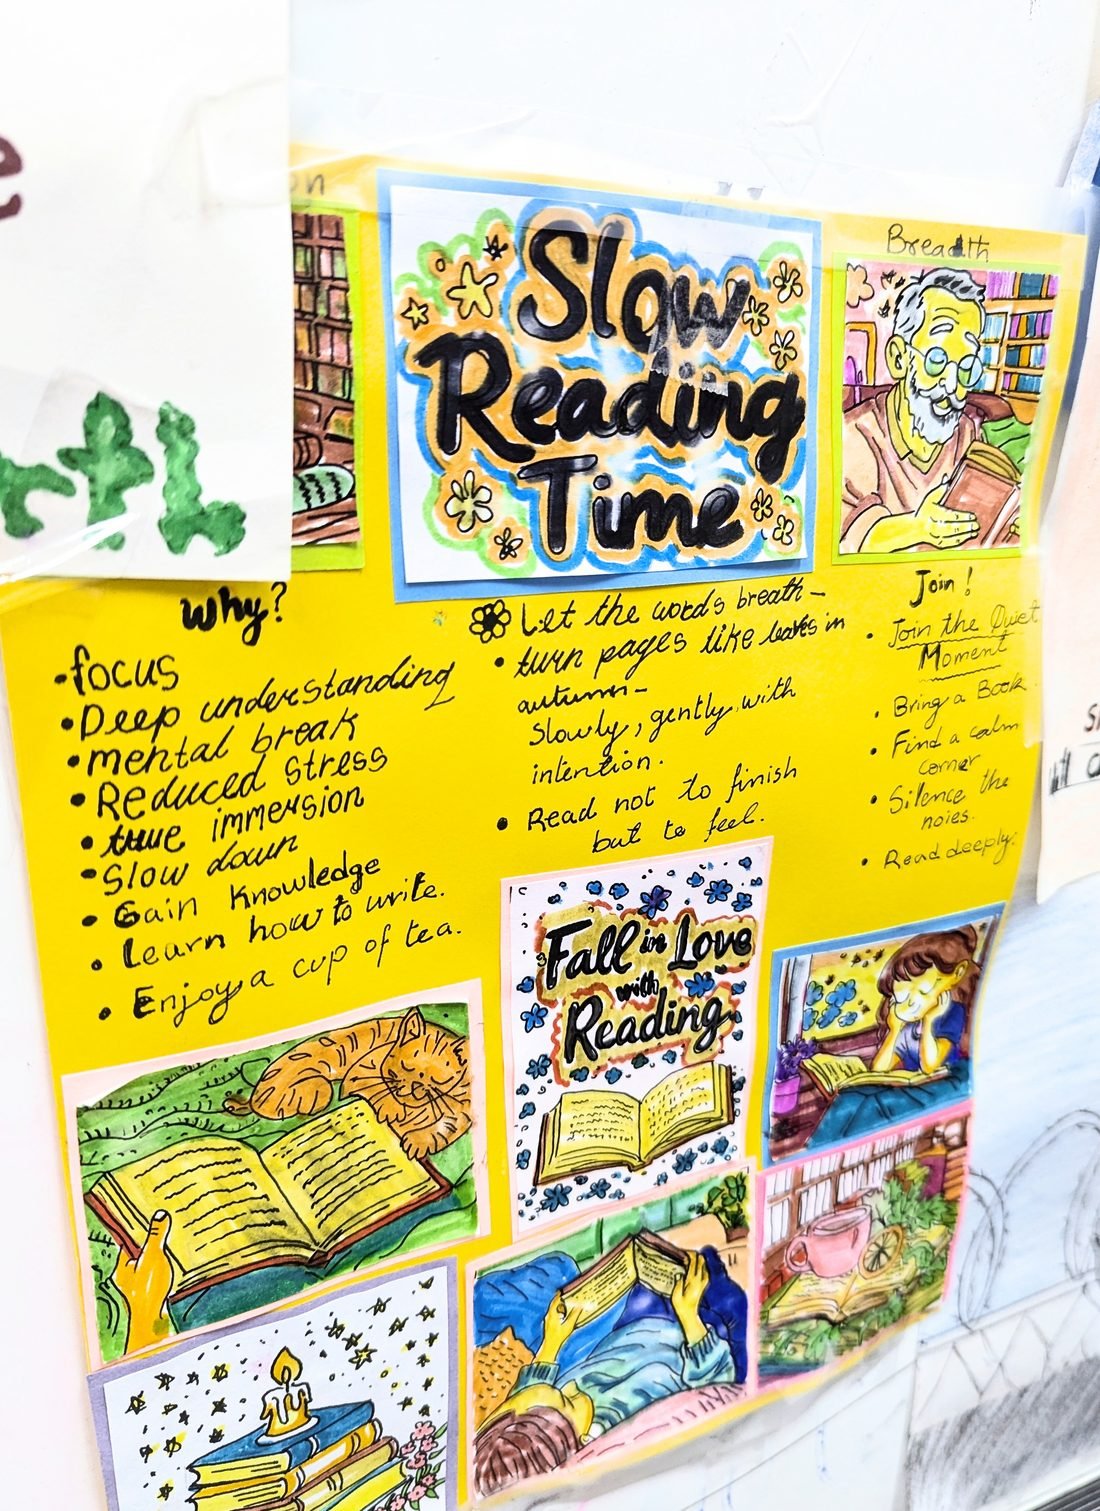 e
rtl
on
Slow
Reading
Time
Breadth
Why?
• focus
• Deep understanding
• mental break
• Reduced stress
• true immersion
• Slow down
• Gain Knowledge
• Learn how to write.
• Enjoy a cup of tea.
Let the words breath –
• turn pages like leaves in
autumn –
slowly, gently, with
intention.
• Read not to finish
but to feel.
Join!
• Join the Quiet
Moment
• Bring a Book.
• Find a calm
corner
• Silence the
noies.
• Read deeply.
Fall in Love
with
Reading